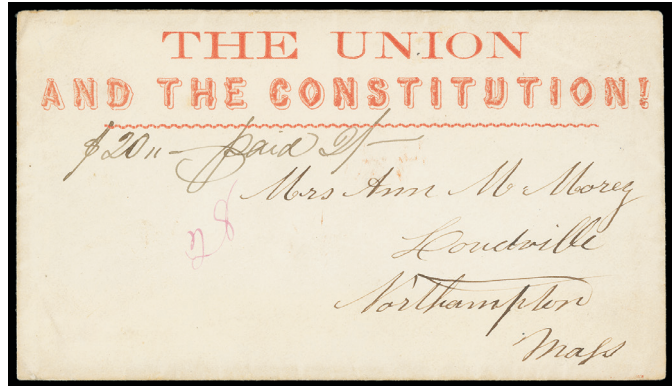 THE UNION
AND THE CONSTITUTION!
$20 " — paid 2/ —
Mrs Ann M Morey
Loudville
Northampton
Mass